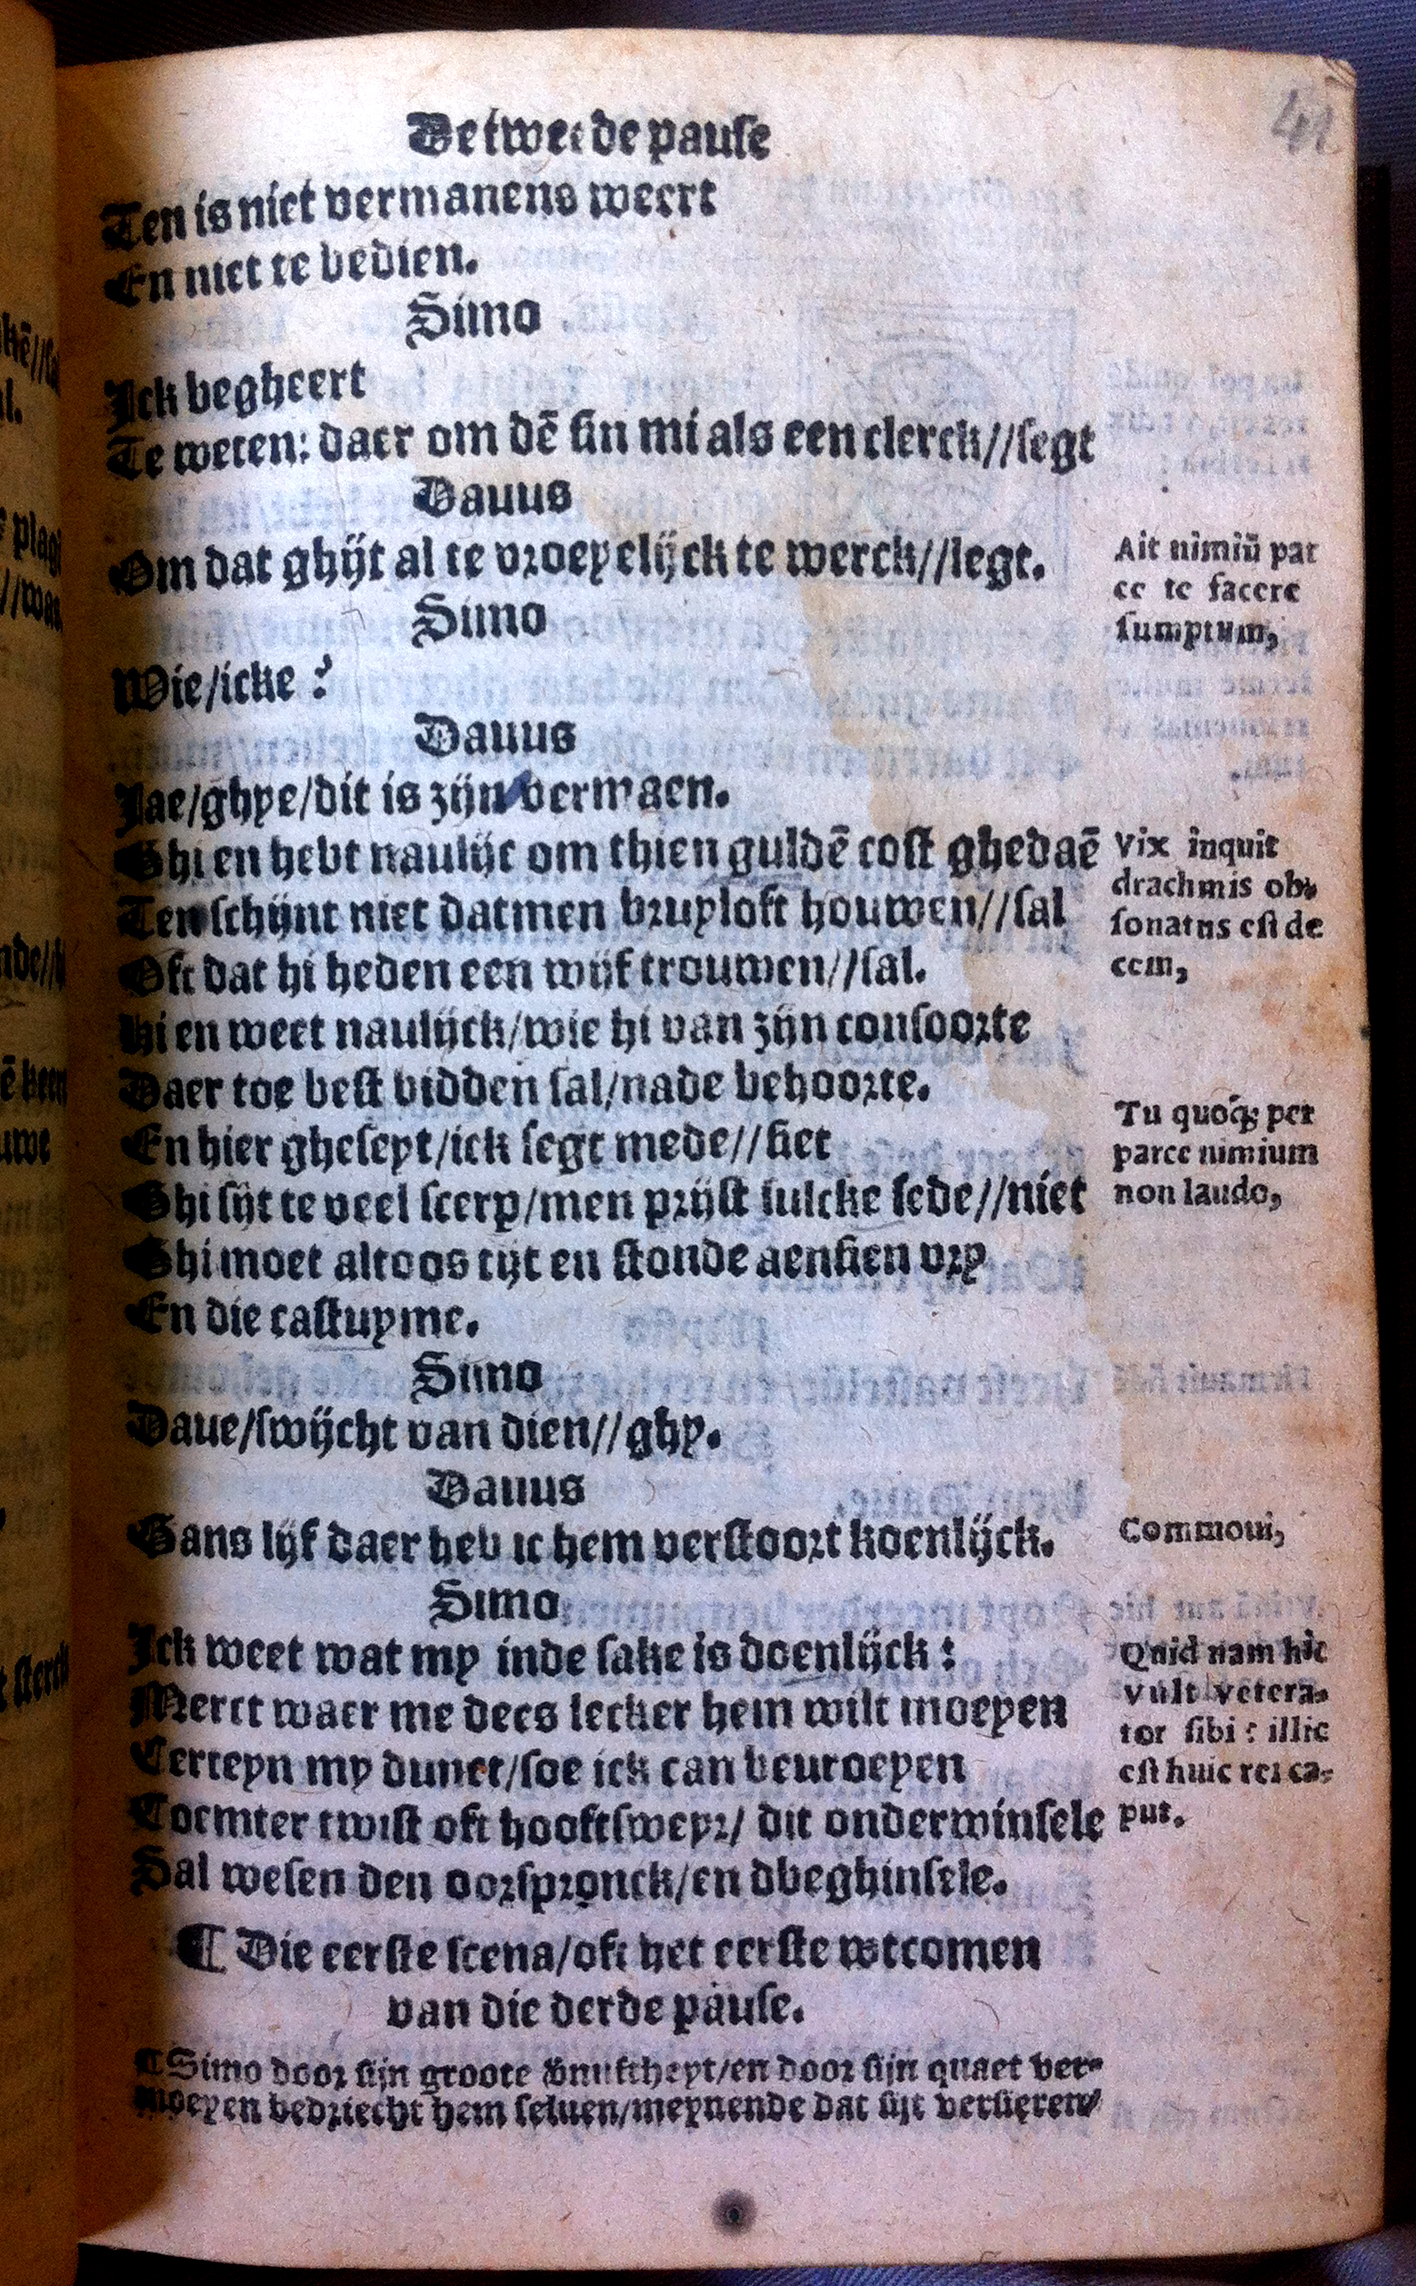 41
De twee de pause
Ten is niet vermanens weert
En niet te bedien.
Simo
Ick begheert
Te weten: daer om dē sin mi als een clerck//segt
Dauus
Om dat ghijt al te vroeyelijck te werck//legt.
Ait nimiũ par
ce te facere
sumptum,
Simo
Wie/icke?
Dauus
Jae/ghye/dit is zijn vermaen.
Ghi en hebt naulijc om thien guldē cost ghedaē
Ten schijnt niet datmen bruyloft houwen//sal
Oft dat hi heden een wijf trouwen//sal.
Vix inquit
drachmis ob⸗
sonatus est de
cem,
Hi en weet naulijck/wie hi van zijn consoorte
Daer toe best bidden sal/nade behoorte.
En hier gheseyt/ick segt mede//siet
Ghi sijt te veel scerp/men prijst sulcke sede//niet
Ghi moet altoos tijt en stonde aensien vry
En die castuyme.
Tu quoq; per
parce nimium
non laudo,
Simo
Daue/swijcht van dien//ghy.
Dauus
Gans lijf daer heb ic hem verstoort koenlijck.
Commoui,
Simo
Ick weet wat my inde sake is doenlijck:
Merct waer me dees lecker hem wilt moeyen
Certeyn my dunct/soe ick can beuroeyen
Coemter twist oft hooftsweyr/ dit onderwinsele
Sal wesen den oorspronck/en dbeghinsele.
Quid nam hic
vult vetera⸗
tor sibi: illic
est huic rei ca⸗
put.
¶ Die eerste scena/oft het eerste wtcomen
van die derde pause.
¶ Simo door sijn groote vnuftheyt/en door sijn quaet ver⸗
moeyen bedriecht hem seluen/meynende dat sijt versieren/